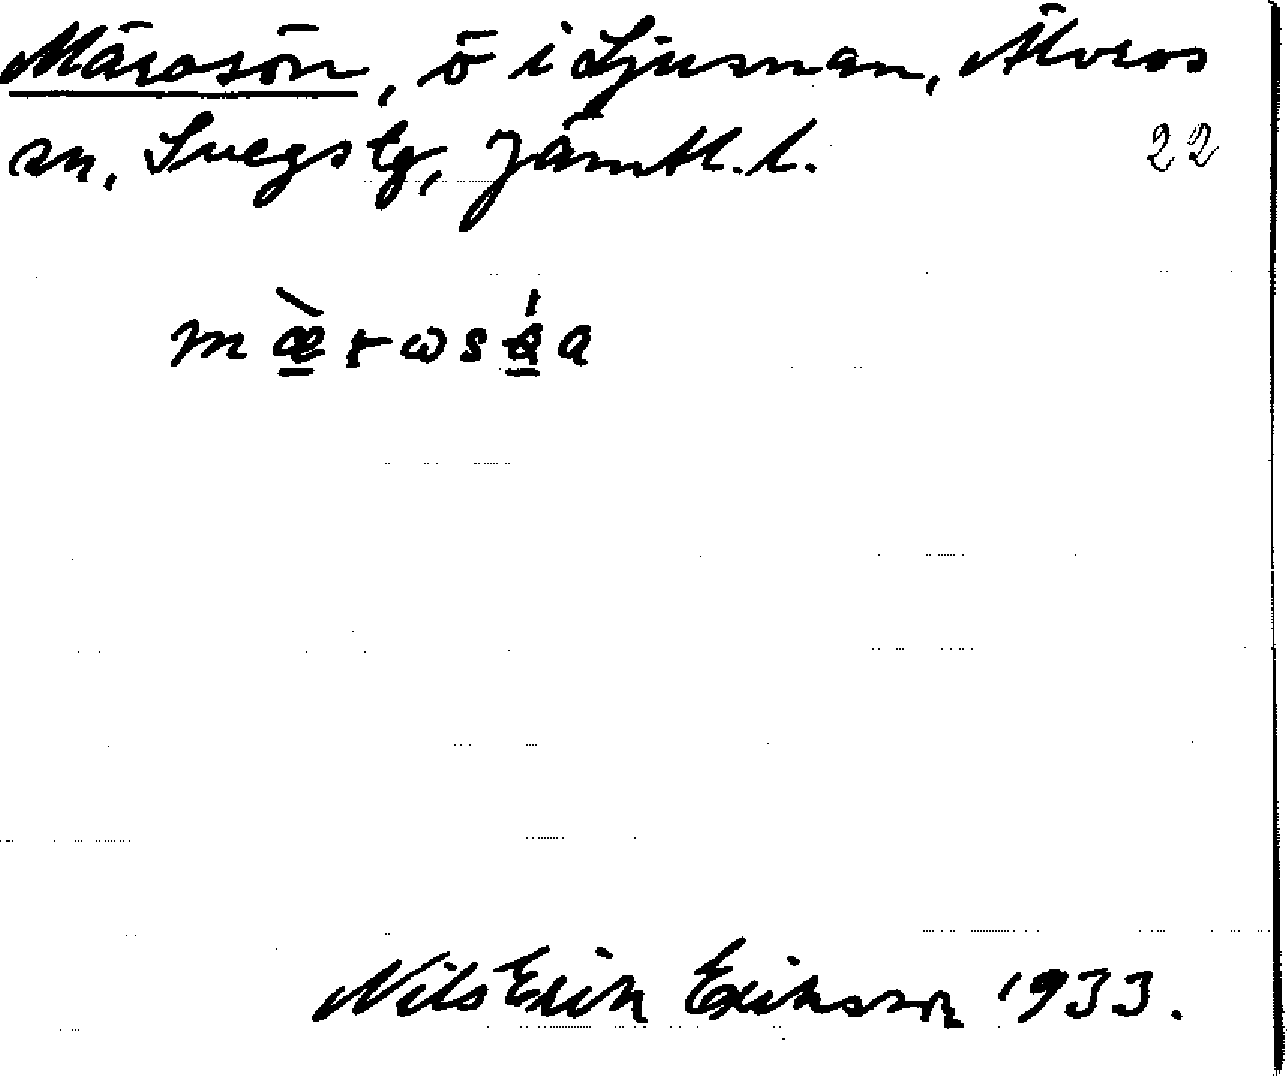 Märosön, ö i Ljusnan, Älvros
sn, Svegs tg, Jämtl. l.
22
Nils Erik Eriksson 1933.